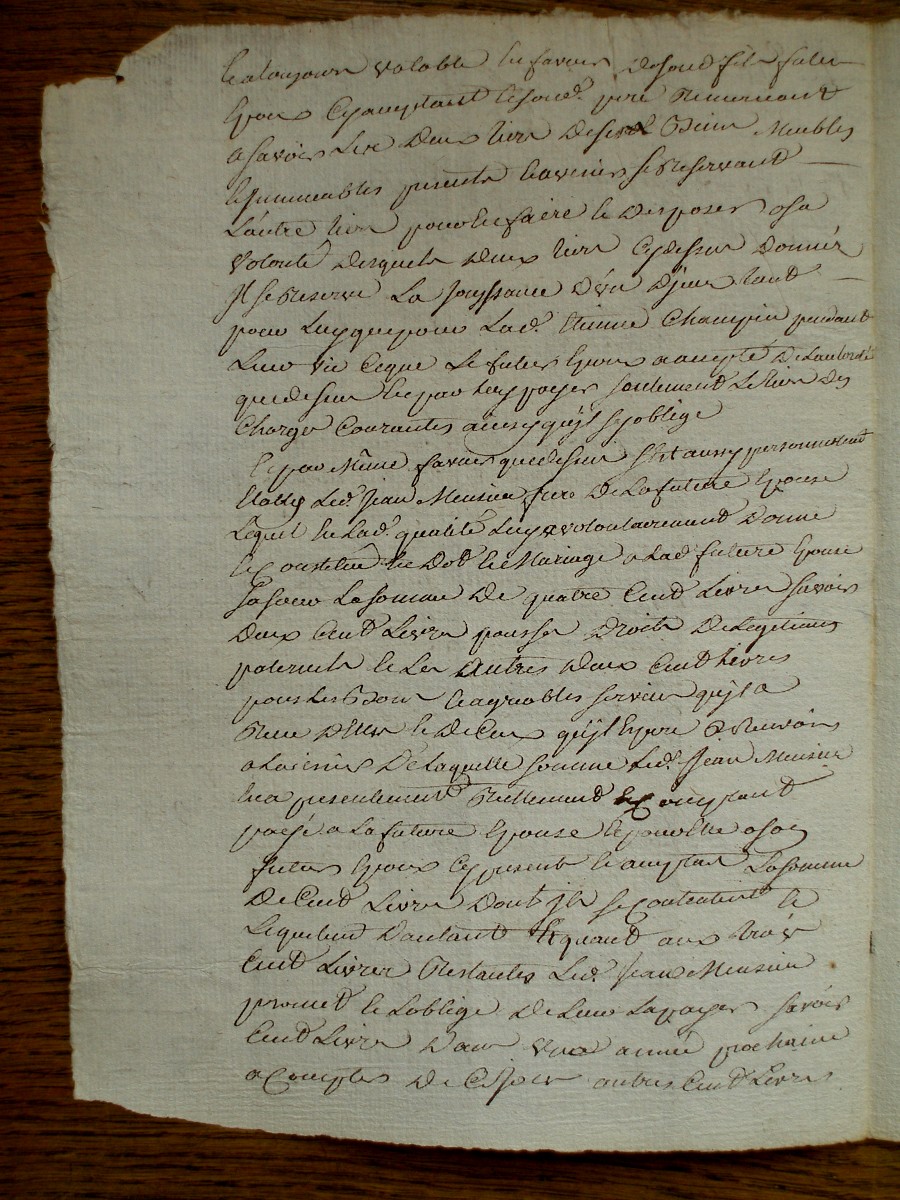 et a toujours valable en faveur de son d. fils futur
Epoux Cy acceptant le sond. pere Remerciant
a savoir Les Deux tiers De ses Biens Meubles
et Immeubles presents et avenir se Reservant
L'autre tiers pour en faire et Disposer a sa
Volonté Desquels Deux tiers Cy dessus Donnés
Il se Reserve La Jouyssance tant
pour Luy que pour Lad. Champin pendant
Leur vie Ce que Le futur Epoux a accepté De L'autorité
que dessus et par Luy payer seulement Le tiers Des
Charges Courantes ainsy qu'il s'y oblige
Et par Même faveur que dessus S'est aussy personnellement
Etably Led. Jean Meusnier frere De La future Epouse
Lequel en Lad. qualité Luy a volontairement Donné
et Constitué en Dot et Mariage a Lad. future Epouse
Sa soeur La somme De quatre Cent Livres savoir
Deux Cent Livres pour ses Droits De Legitime
paternels et Les Autres Deux Cent Livres
pour Les Bons et agreables services qu'il a
Receu D'Elle et De Ceux qu'il Espere Recevoir
a L'avenir De Laquelle somme Led. Jean Meusnier
en a presentement Reellement et Comptant
payé a La future Epouse et pour Elle a son
futur Epoux Cy present et acceptant La somme
De Cent Livres Dont ils se Contentent et
Lequitent D'autant Et quant aux trois
Cent Livres Restantes Led. Jean Meusnier
promet et s'oblige De Leur La payer savoir
Cent Livres Dans une année prochaine
a Compter De Ce Jour autres Cent Livres